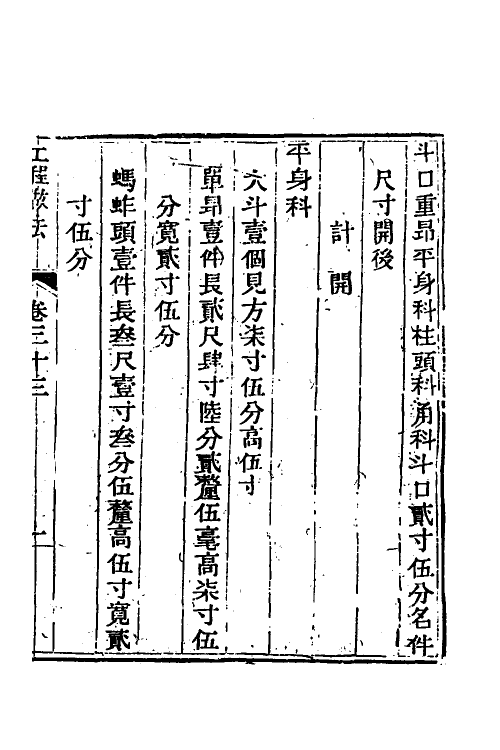 斗口重昂平身科柱頭科角科斗口貳寸伍分名件
尺寸開後
計開
平身科
大斗壹個見方柒寸伍分高伍寸
單昂壹件長貳尺肆寸陸分貳釐伍毫高柒寸伍
分寛貳寸伍分
螞蚱頭壹件長叁尺壹寸叁分伍釐高伍寸寛貳
寸伍分
工程做法
卷三十三
一